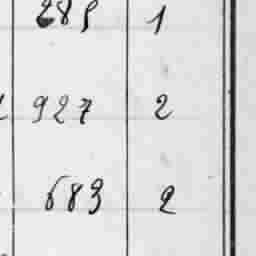 285 1
927 2
683 2